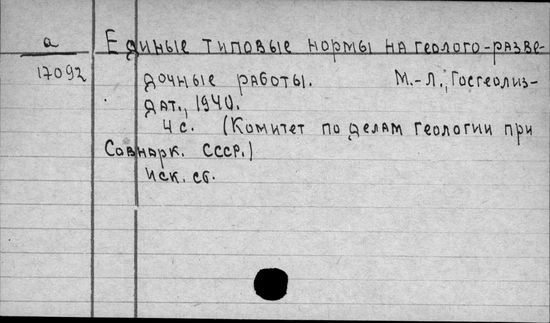 а Единые типовые нормы на геолого-разве-
17092 дочные работы. М.-Л., Госгеолиз-
дат., 1940.
4 с. (Комитет по делам геологии при
Совнарк. СССР.)
иск. ст.